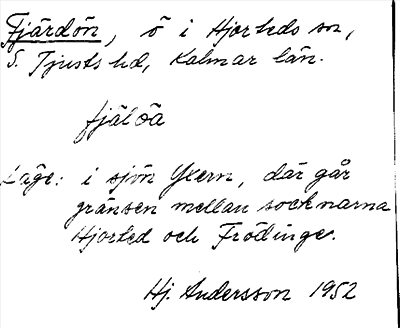 Fjärdön, ö i Hjorteds sn,
S. Tjusts hd, Kalmar län.
fjäḷöa
Läge: i sjön Yxern, där går
gränsen mellan socknarna
Hjorted och Frödinge.
Hj. Andersson 1952